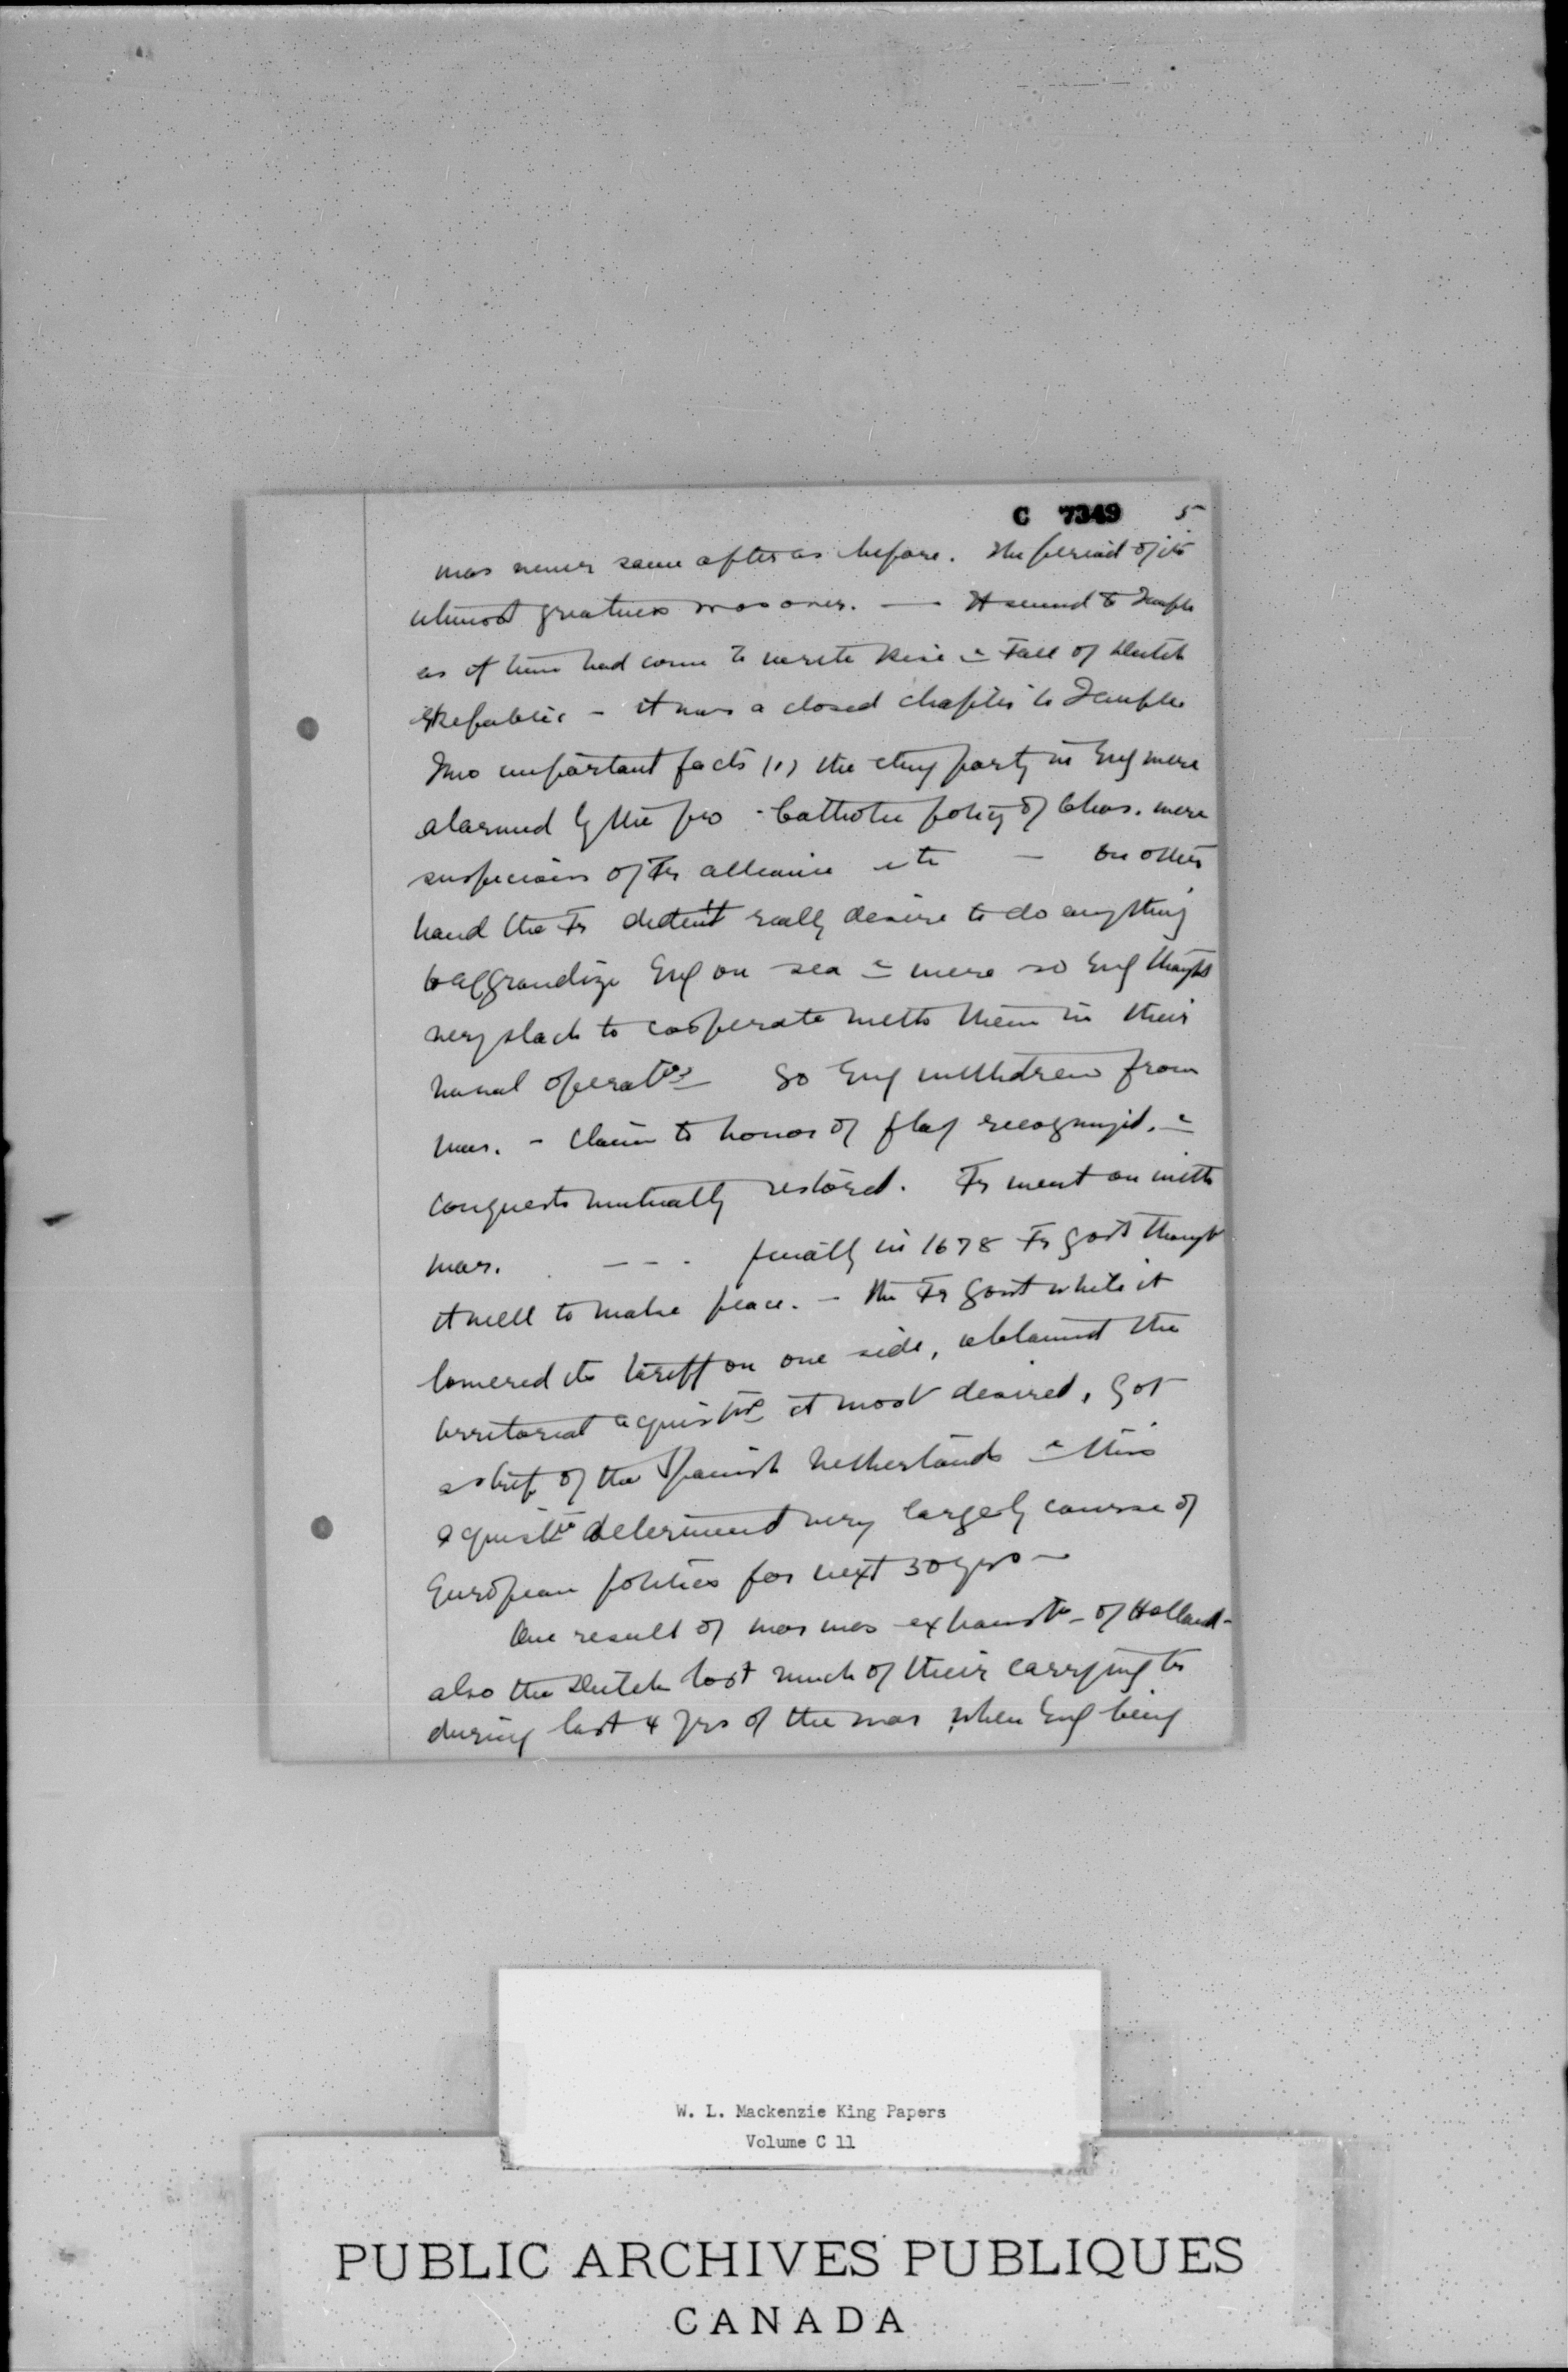 C 7349 5
was never same after as before. The period of its
utmost greatness was over. — It seemed to Temple
as if time had come to write Rise & Fall of Dutch
Republic - it was a closed chapter to Temple
Two important facts (1) the party in Eng were
alarmed by the pro-Catholic policy of Chas. were
suspicious of Fr alliance etc — on other
hand the Fr didn't really desire to do anything
to aggrandize Eng on sea & were so Eng thought
very slack to cooperate with them in their
naval operatns So Eng withdrew from
war. - Claim to honor of flag recognized. &
conquests mutually restored. Fr went on with
war. - - - finally in 1678 Fr govt thought
it well to make peace. - The Fr Govt while it
lowered its tariff on one side, obtained the
territorial aquistns it most desired, got
a strip of the Spanish Netherlands & this
aquistn determined very largely course of
European politics for next 30 yrs —
One result of war was exhaustn of Holland -
also the Dutch lost much of their carrying tr
during last 4 yrs of the war when Eng being
W. L. Mackenzie King Papers
Volume C 11
PUBLIC ARCHIVES PUBLIQUES
CANADA